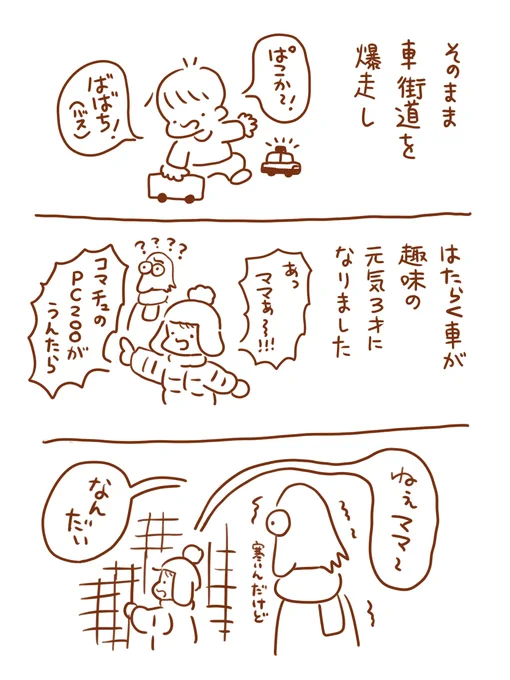 そのまま
車街道を
爆走し
ぱこかー!
ばばち!
(バス)
はたらく車が
趣味の
元気3才に
なりました
あっ
ママぁ〜!!!
????
コマチュの
PC200が
うんたら
ねぇママ〜
寒いんだけど
なんだい